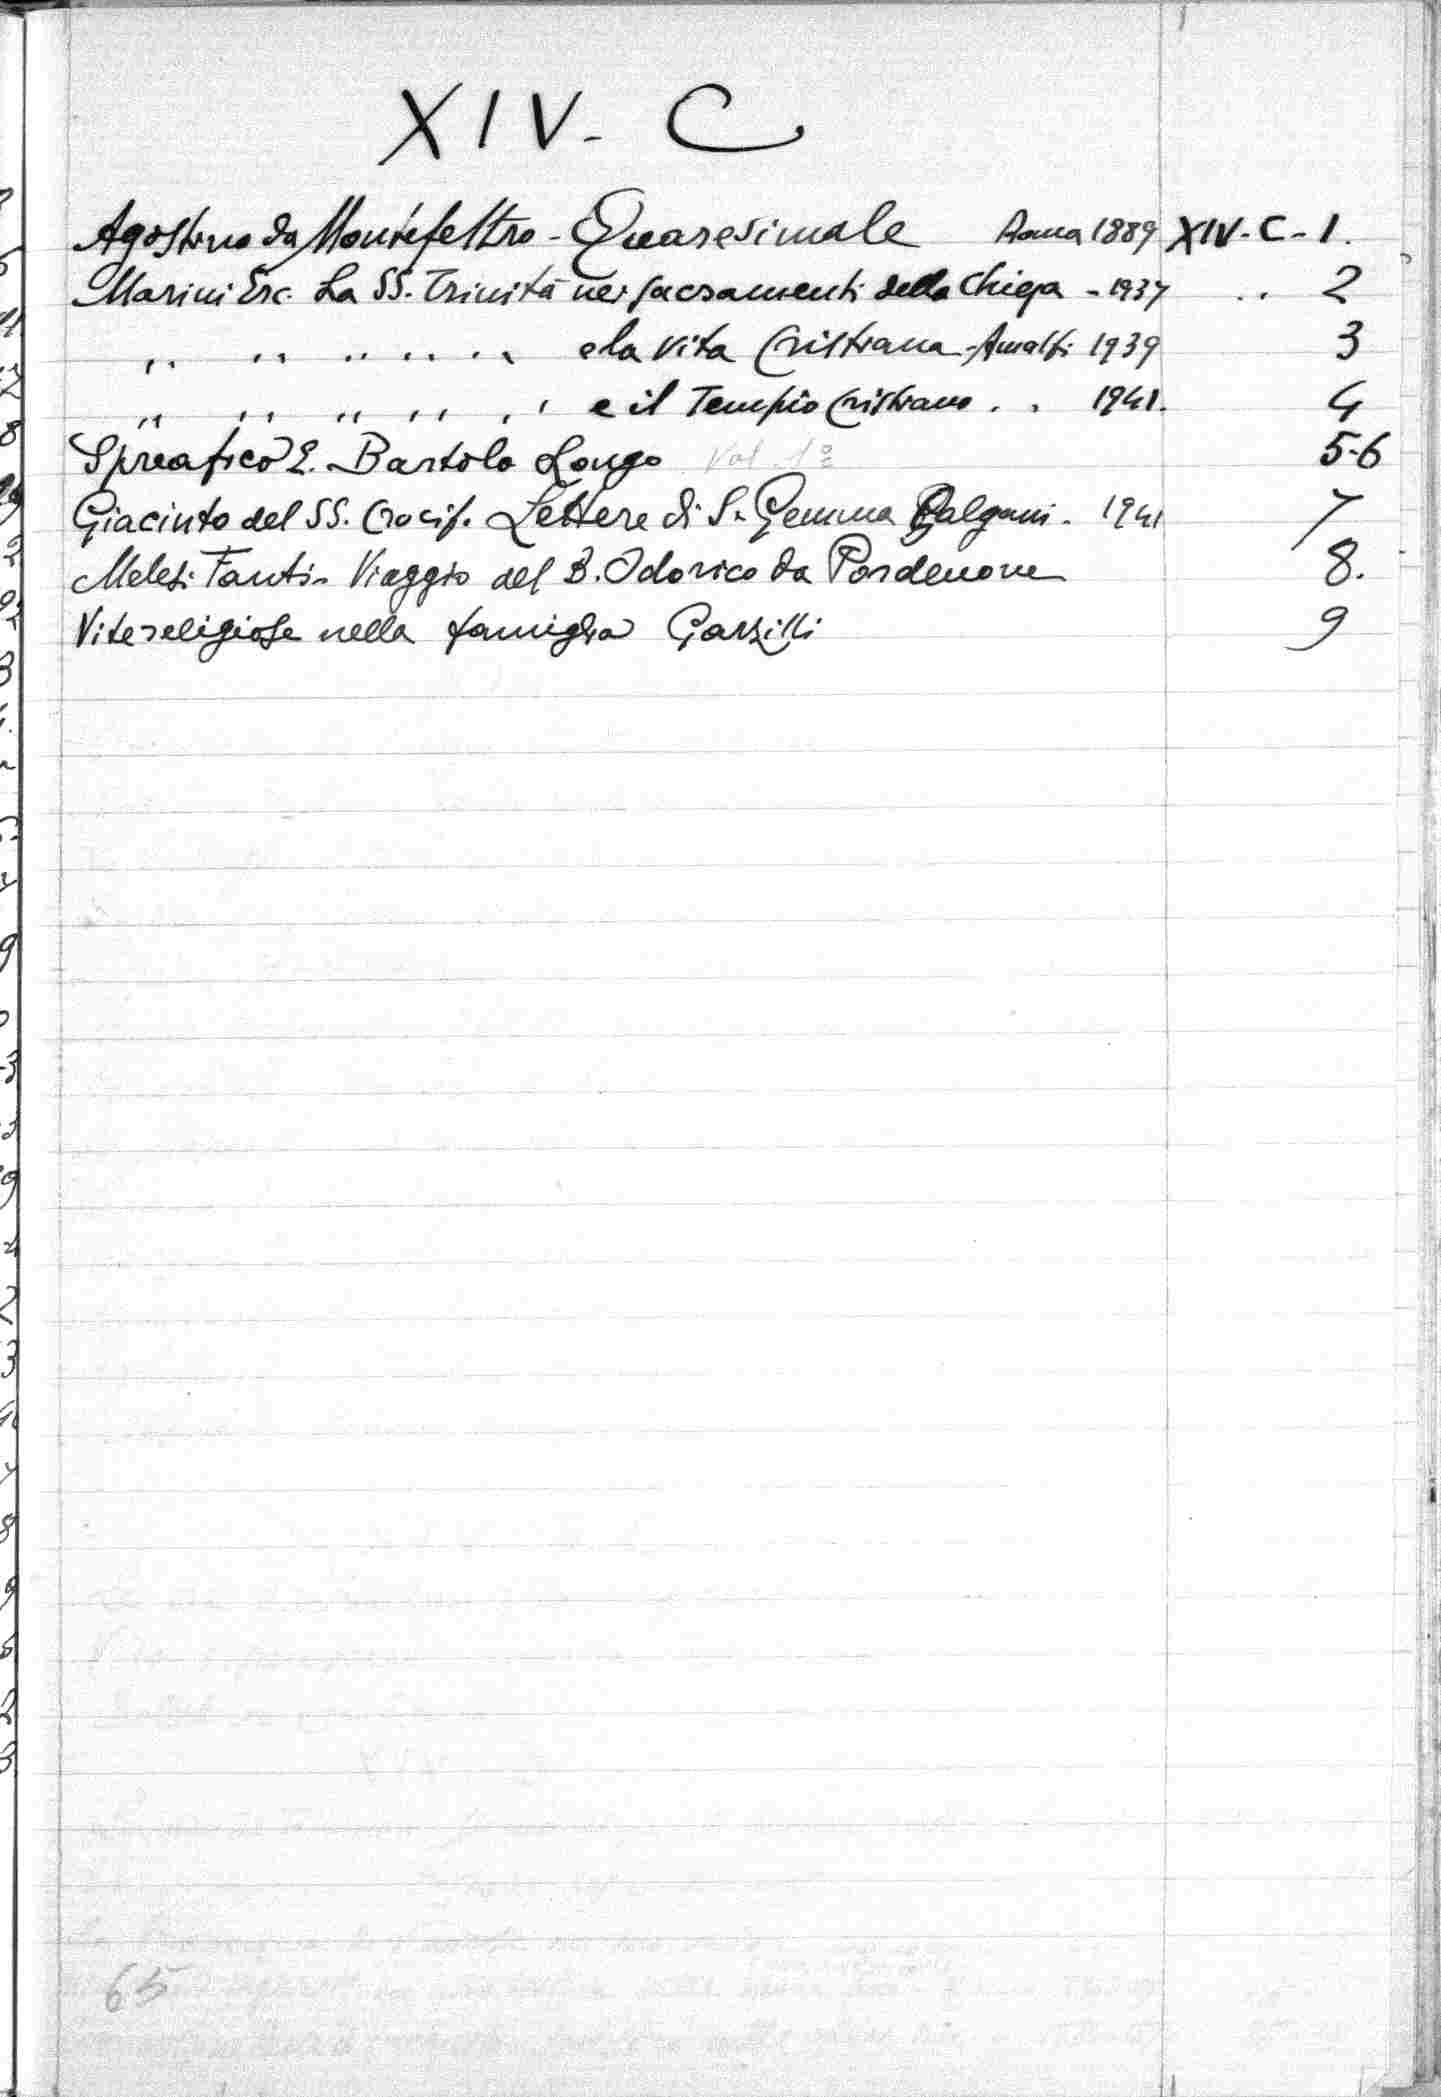 XIV - C
Agostino da Montefeltro - Quaresimale Roma 1889 XIV - C - 1.
Marini Erc. La SS. Trinità nei sacramenti della Chiesa - 1937 .. 2
,, ,, ,, ,, ,, e la vita Cristiana - Amalfi 1939 3
,, ,, ,, ,, ,, e il Tempio Cristiano . . 1941. 4
Spreafico E. Bartolo Longo Vol 1º 5-6
Giacinto del SS. Crocif. Lettere di S. Gemma Galgani - 1941 7
Melesi Fanti - Viaggio del B. Odorico da Pordenone 8.
Vite religiose nella famiglia Garzilli 9
65